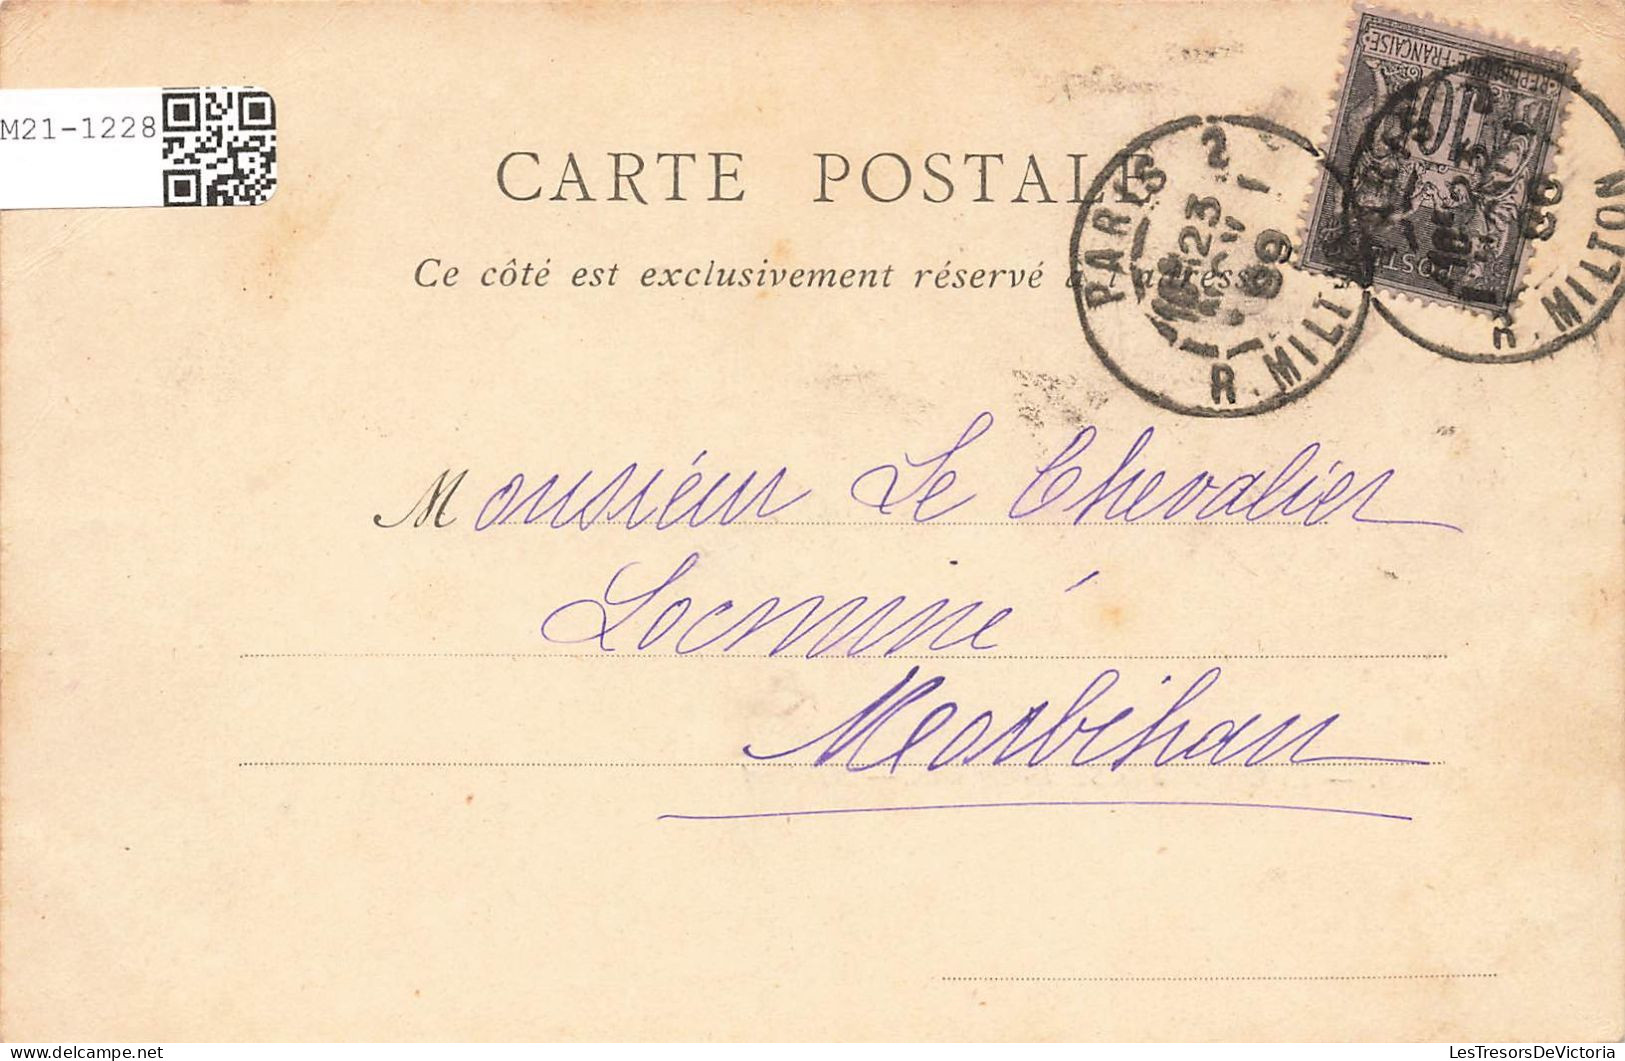 M21-1228
CARTE POSTALE
Ce côté est exclusivement réservé à l'adresse
REPUBLIQUE FRANÇAISE
10
POSTE
PARIS 2
23
99
R. MILTON
R. MILTON
Monsieur Le Chevalier
Locminé
Morbihan
LesTresorsDeVictoria.com